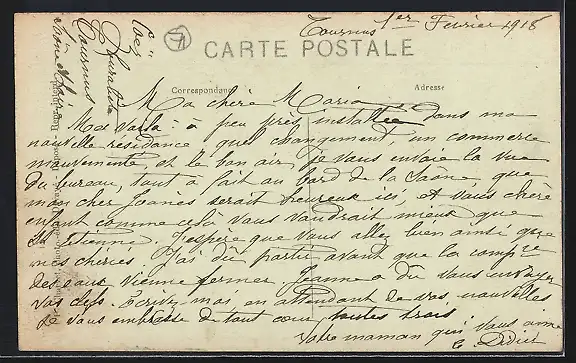 Tournus 1er Fevrier 1918
CARTE POSTALE
Correspondance
Adresse
Ma chère Maria
Me voila à peu près installée dans ma
nouvelle residance, quel changement, un commerce
mouvementé, et le bon air, je vous envoie la vue
du bureau, tout à fait au bord de la Saone, que
mon cher Joanès serait heureux ici, et vous chère
enfant comme celà vous vaudrait mieux que
St Etienne. J'espère que vous allez bien ainsi que
mes chéries. J'ai du partir avant que la Compie
des eaux, vienne fermer, Jeanne a du vous envoyer
vos clefs. Ecrivez moi, en attendant de vos nouvelles
Je vous embrasse de tout coeur, toutes trois
Votre maman qui vous aime
E. Didier
Tournus
Saône et Loire